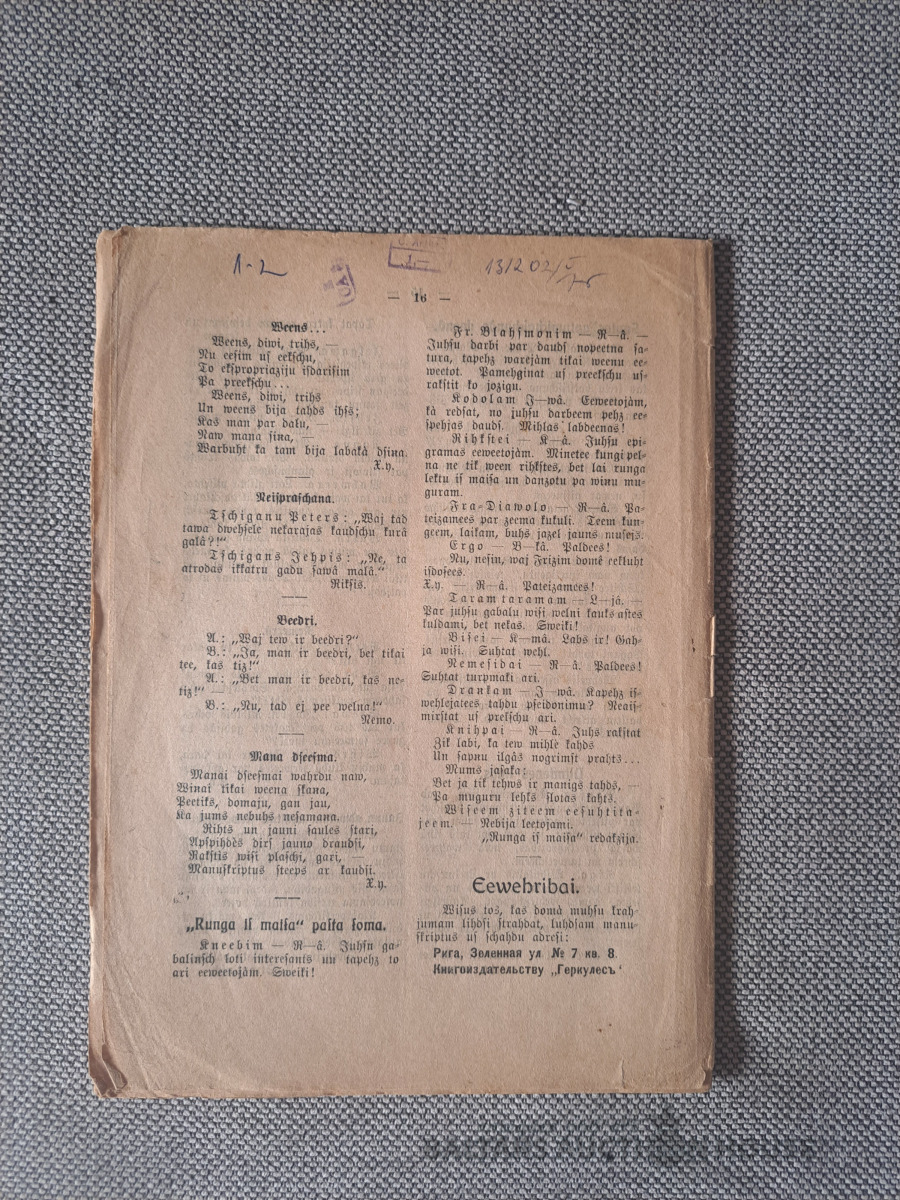 1-2
1-
131202/V
— 16 —
Weens...
Weens, diwi, trihs, —
Nu eesim uſ eekſchu,
To ekſpropriaziju iſdariſim
Pa preekſchu...
Weens, diwi, trihs
Un weens bija tahds ihſs;
Kas man par daļu, —
Naw mana ſiņa, —
Warbuht ka tam bija labakâ dſiņa.
X.y.
Neiſpraſchana.
Tſchiganu Peters: „Waj tad
tawa dwehſele nekarajas kaudſchu kurâ
galâ?!“
Tſchigans Jehpis: „Ne, ta
atrodas ikkatru gadu ſawâ malâ.“
Rikſis.
Beedri.
A.: „Waj tew ir beedri?“
B.: „Ja, man ir beedri, bet tikai
tee, kas tiz!“
A.: „Bet man ir beedri, kas ne-
tiz!“ —
B.: „Nu, tad ej pee welna!“
Nemo.
Mana dſeeſma.
Manai dſeeſmai wahrdu naw,
Winai tikai weena ſkaņa,
Peetiks, domaju, gan jau,
Ka jums nebuhs neſamaņa.
Rihts un jauni ſaules ſtari,
Apſpihdès dirſ jauno draudſi,
Rakſtis wiſi plaſchi, gari, —
Manuſkriptus ſteeps ar kaudſi.
X.y.
„Runga iſ maiſa“ paſta ſoma.
Kneebim — R—â. Juhſu ga-
balinſch ļoti intereſants un tapehz to
ari eeweetojàm. Sweiki!
Fr. Blahſmonim — R—â. —
Juhſu darbi par daudſ nopeetna ſa-
tura, tapehz warejàm tikai weenu ee-
weetot. Pamehginat uſ preekſchu uſ-
rakſtit ko jozigu.
Kodolam J—wâ. Eeweetojàm,
kâ redſat, no juhſu darbeem pehz ee-
ſpehjas daudſ. Mihļas labdeenas!
Rihkſtei — K—â. Juhſu epi-
gramas eeweetojàm. Minetee kungi pel-
na ne tik ween rihkſtes, bet lai runga
lektu iſ maiſa un danzotu pa wiņu mu-
guram.
Fra-Diawolo — R—â. Pa-
teizamees par zeema kukuli. Teem kun-
geem, laikam, buhs jazel jauns muſejs.
Ergo — B—kâ. Paldees!
Nu, neſin, waj Frizim domê eekluht
iſdoſees.
X.y. — R—â. Pateizamees!
Taramtaramam — L—jâ. —
Par juhſu gabalu wiſi welni kauks aſtes
kuldami, bet nekas. Sweiki!
Biſei — K—mâ. Labs ir! Gah-
ja wiſi. Suhtat wehl.
Nemeſidai — R—â. Paldees!
Suhtat turpmaki ari.
Drankam — J—wâ. Kapehz iſ-
wehlejatees tahdu pſeidonimu? Neaiſ-
mirſtat uſ preekſchu ari.
Knihpai — R—â. Juhs rakſtat
Zik labi, ka tew mihlè kahds
Un ſapņu ilgâs nogrimſt prahts...
Mums jaſaka:
Bet ja tik tehws ir manigs tahds, —
Pa muguru lehks ſlotas kahts.
Wiſeem ziteem eeſuhtita-
jeem. — Nebija leetojami.
„Runga iſ maiſa“ redakzija.
Eewehribai.
Wiſus tos, kas domâ muhſu krah-
jumam lihdſi ſtrahdat, luhdſam manu-
ſkriptus uſ ſchahdu adreſi:
Рига, Зеленная ул № 7 кв. 8.
Книгоиздательству „Геркулесъ“